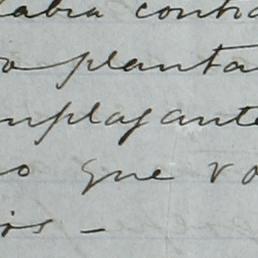 labra contra
a planta
mplazante
o que vo
is -